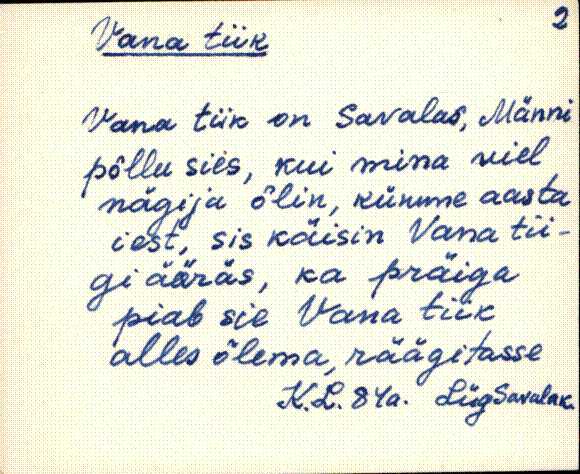 2
Vana tiik
Vana tiik on Savalas, Männi
põllu sies, kui mina viel
nägija õlin, kümme aasta
iest, sis käisin Vana tii-
gi ääräs, ka präiga
piab sie Vana tiik
alles õlema, räägitasse
K.L. 84a. LügSavalak.